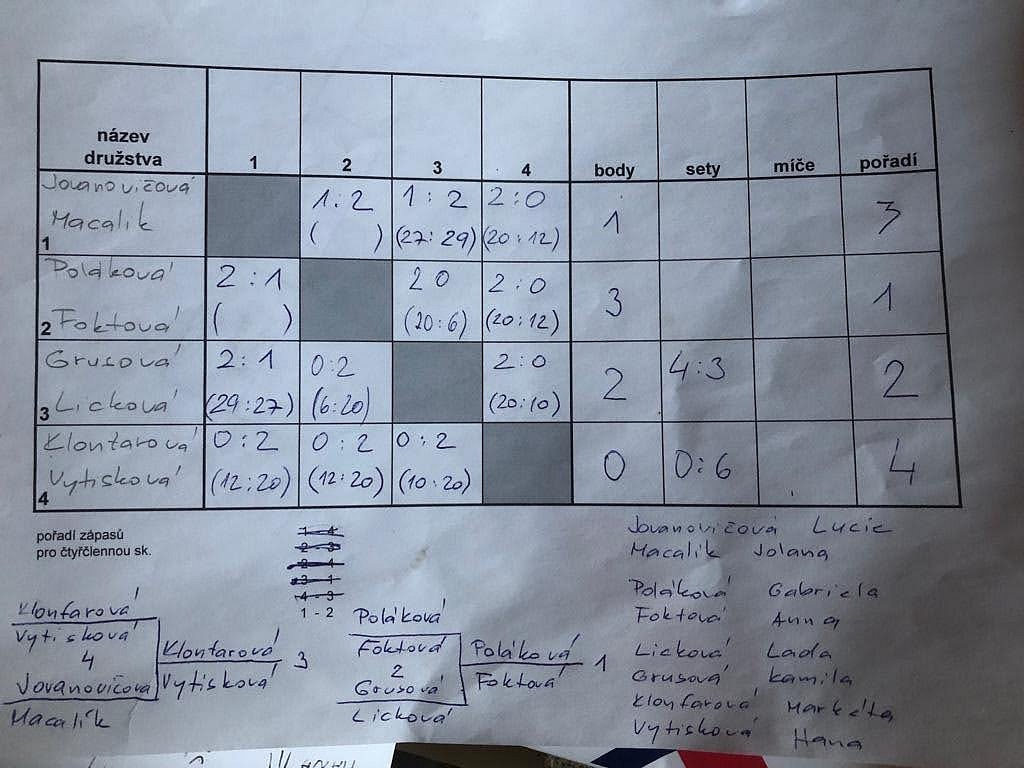 název
družstva 1 2 3 4 body sety míče pořadí
Jovanovičová 1:2 1:2 2:0
Macalík ( ) (27:29) (20:12) 1 3
1
Poláková 2:1 2 0 2:0
2 Foktová ( ) (20:6) (20:12) 3 1
Grusová 2:1 0:2 2:0 4:3
3 Licková (29:27) (6:20) (20:10) 2 2
Klontarová 0:2 0:2 0:2
Vytisková (12:20) (12:20) (10:20) 0 0:6 4
4
pořadí zápasů
pro čtyřčlennou sk.
1 - 4
2 - 3
3 - 1
4 - 3
1 - 2
Klonfarová
Vytisková
4
Jovanovičová
Macalík
Klontarová 3
Vytisková
Poláková
Foktová
2
Grusová
Licková
Poláková 1
Foktová
Jovanovičová Lucie
Macalík Jolana
Poláková Gabriela
Foktová Anna
Licková Lada
Grusová Kamila
Klonfarová Markéta
Vytisková Hana